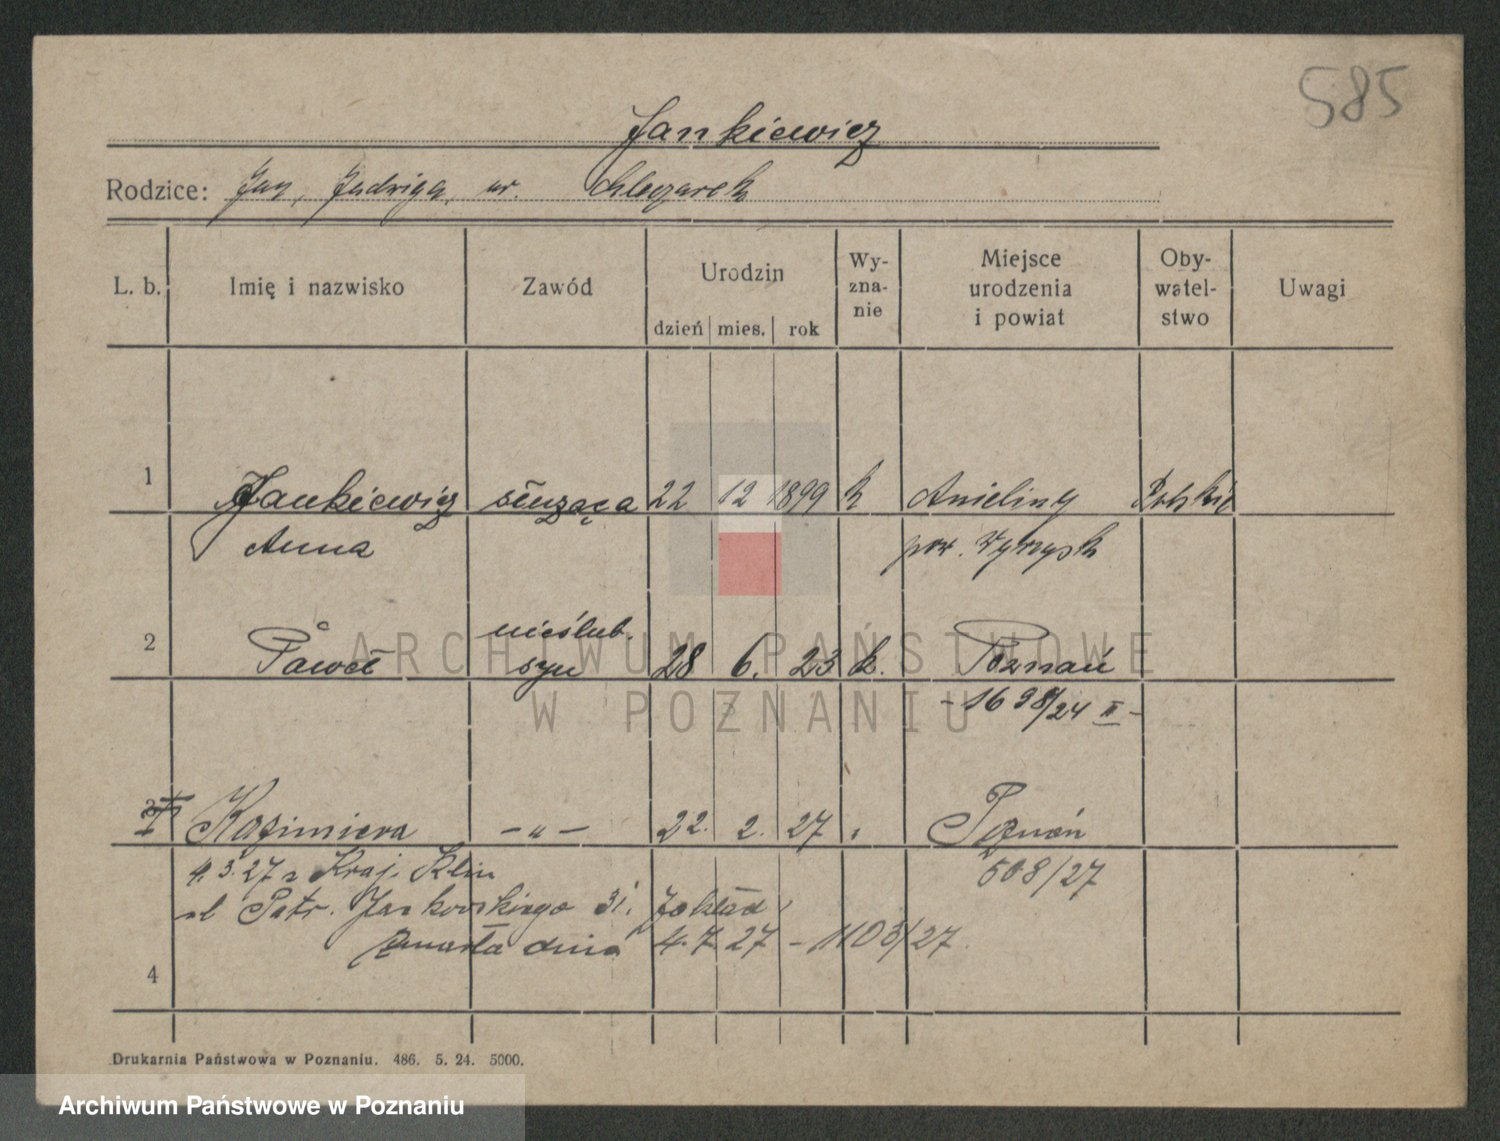 585
Jankiewicz
Rodzice: Jan, Jadwiga, ur. Chlegarek
L. b. Imię i nazwisko Zawód Urodzin dzień mies. rok Wy-zna-nie Miejsce urodzenia i powiat Oby-watel-stwo Uwagi
1 Jankiewicz służąca 22 12 1899 k Anieliny Polskie
Anna pow. Wyrzysk
nieślub.
2 Paweł syn 28 6. 23 k. Poznań
-1698/24 II-
Kazimiera -"- 22. 2. 27 " Poznań
4.3.27 z Kraj. Klin 508/27
ul Patr. Jackowskiego 31. Zakład
zmarła dnia 4.7 27 - 1103/27.
4
Drukarnia Państwowa w Poznaniu. 486. 5. 24. 5000.
ARCHIWUM PAŃSTWOWE
W POZNANIU
Archiwum Państwowe w Poznaniu